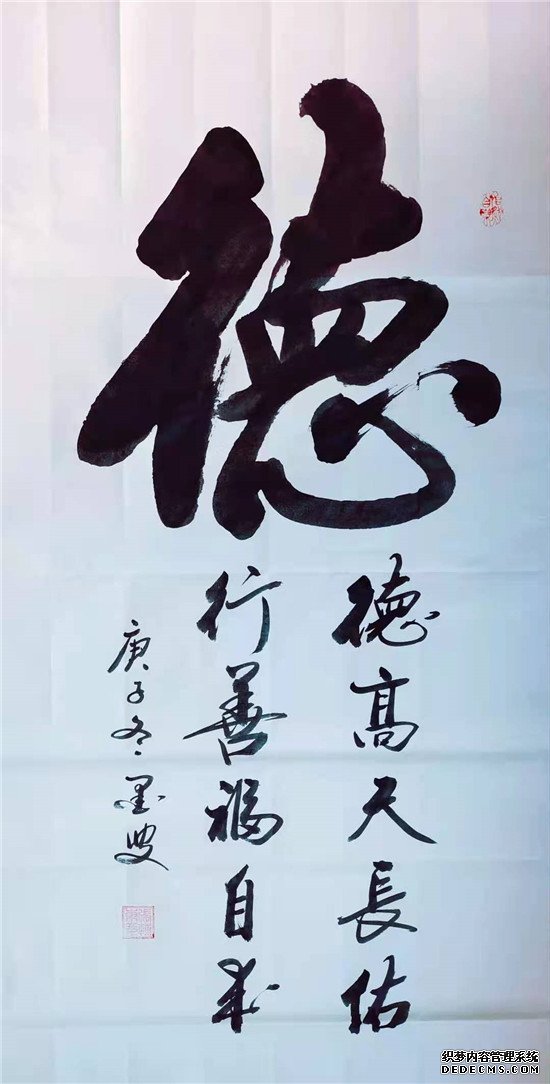 德
德高天長佑
行善福自來
庚子冬 墨叟
织梦内容管理系统
DEDECMS.COM